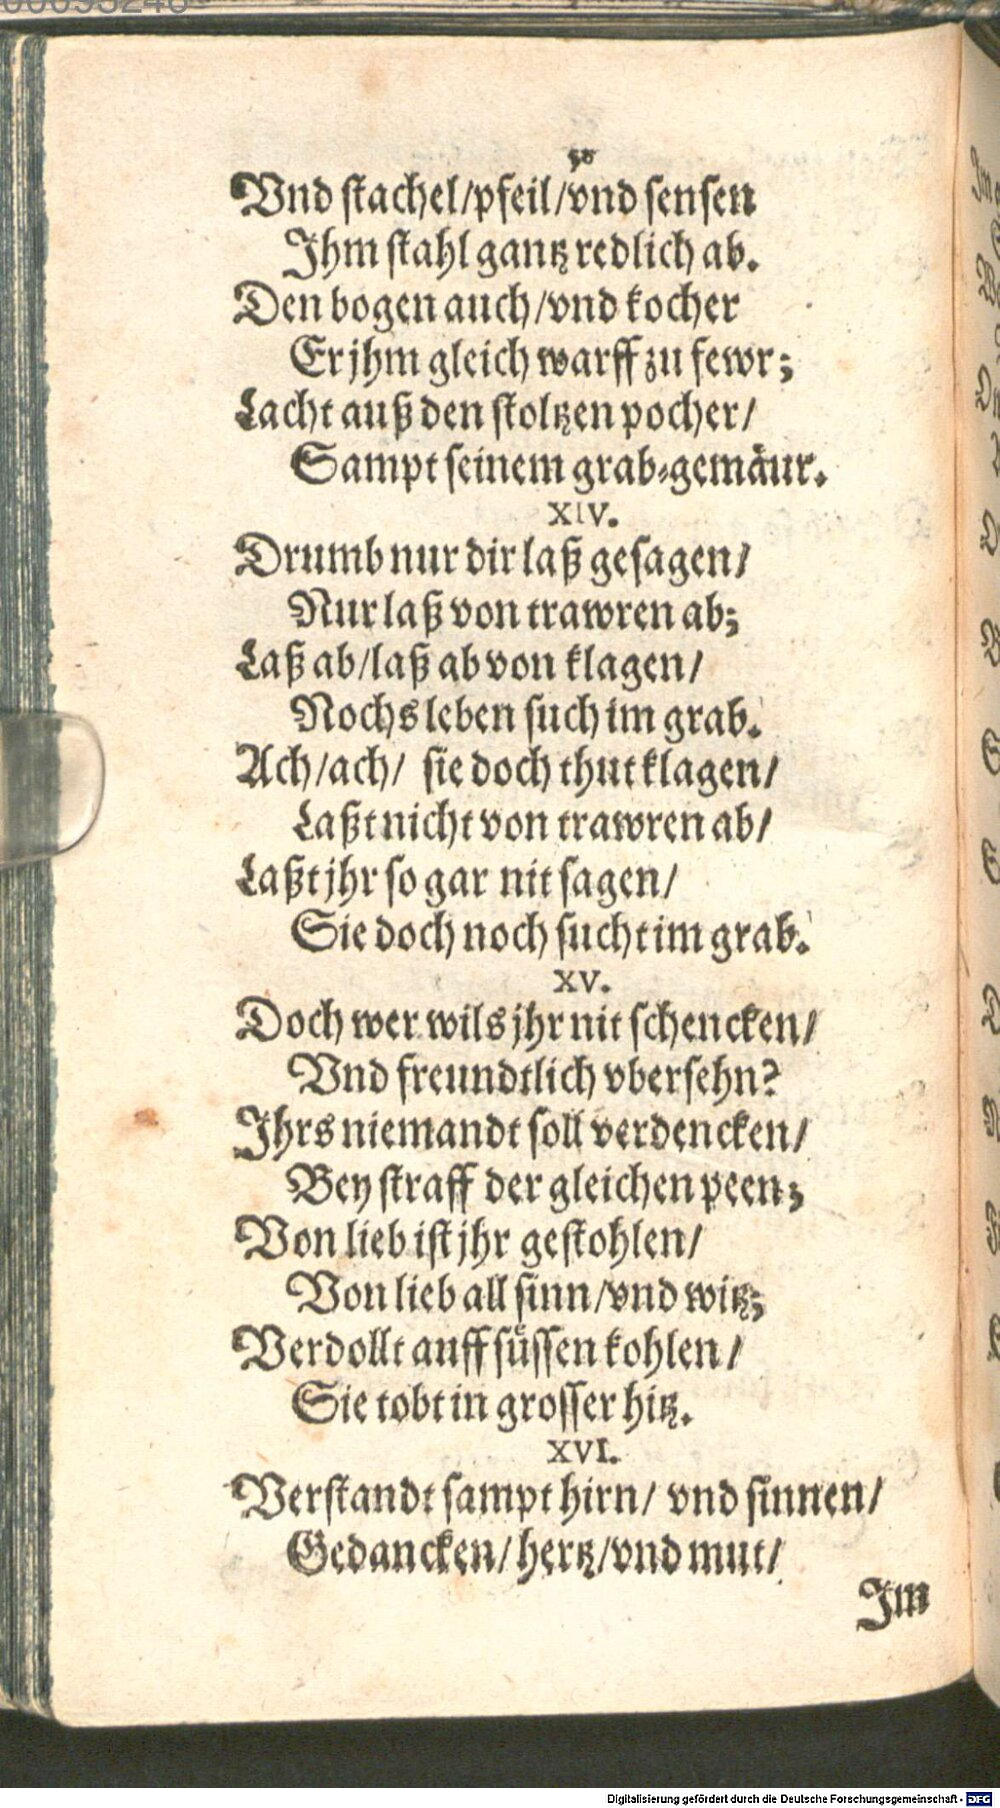 50
Vnd stachel/pfeil/vnd sensen
Ihm stahl gantz redlich ab.
Den bogen auch/vnd kocher
Er jhm gleich warff zu fewr;
Lacht auß den stoltzen pocher/
Sampt seinem grab-gemäur.
XIV.
Drumb nur dir laß gesagen/
Nur laß von trawren ab;
Laß ab/laß ab von klagen/
Nochs leben such im grab.
Ach/ach/ sie doch thut klagen/
Laßt nicht von trawren ab/
Laßt jhr so gar nit sagen/
Sie doch noch sucht im grab.
XV.
Doch wer wils jhr nit schencken/
Vnd freundtlich vbersehn?
Ihrs niemandt soll verdencken/
Bey straff der gleichen peen;
Von lieb ist jhr gestohlen/
Von lieb all sinn/vnd witz;
Verdollt auff süssen kohlen/
Sie tobt in grosser hitz.
XVI.
Verstandt sampt hirn/ vnd sinnen/
Gedancken/hertz/vnd mut/
Im
Digitalisierung gefördert durch die Deutsche Forschungsgemeinschaft - DFG